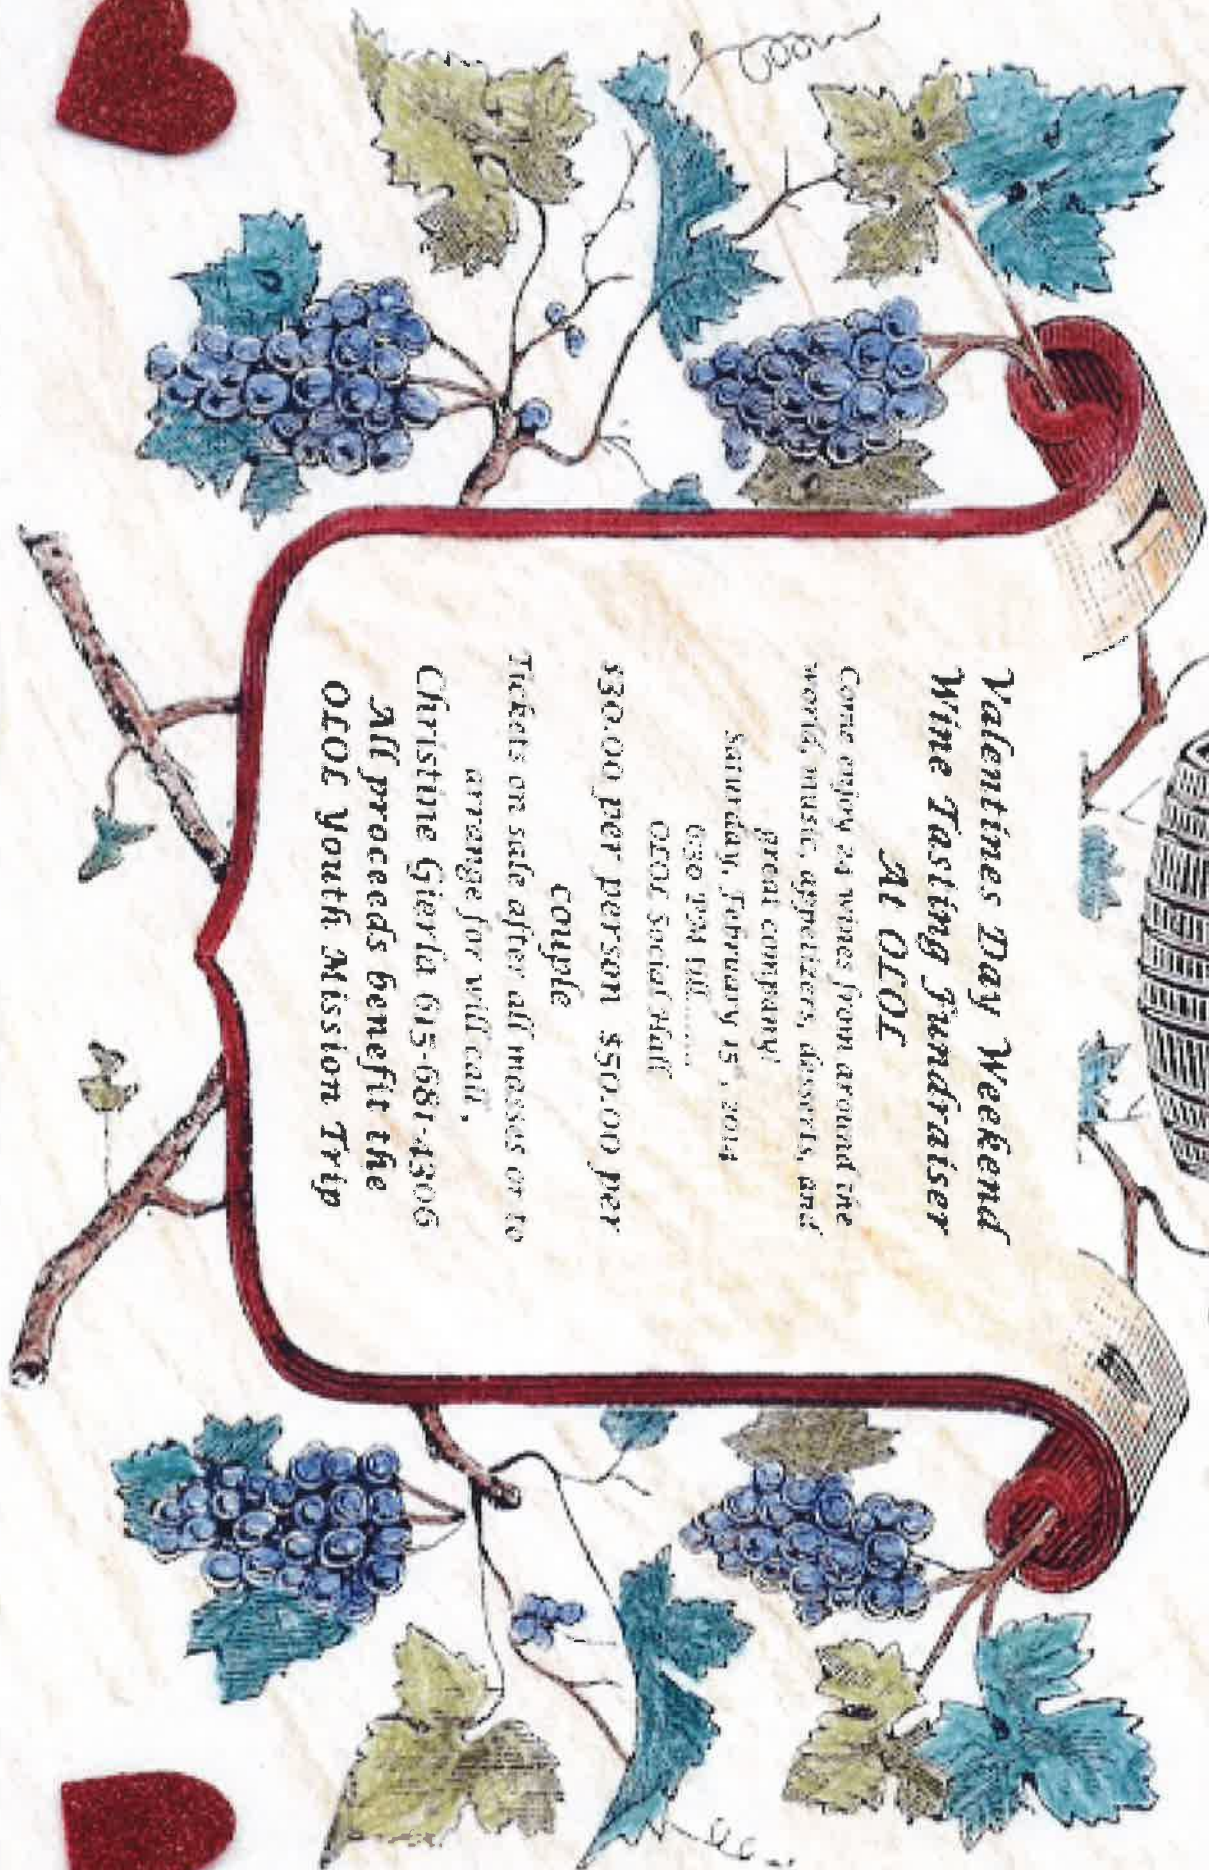 Valentines Day Weekend
Wine Tasting Fundraiser
At OLOL
Come enjoy 24 wines from around the
world, music, appetizers, desserts, and
great company!
Saturday, February 15, 2014
630 PM till........
OLOL Social Hall
$30.00 per person $50.00 per
couple
Tickets on sale after all masses or to
arrange for will call,
Christine Gierla 615-681-4306
All proceeds benefit the
OLOL Youth Mission Trip